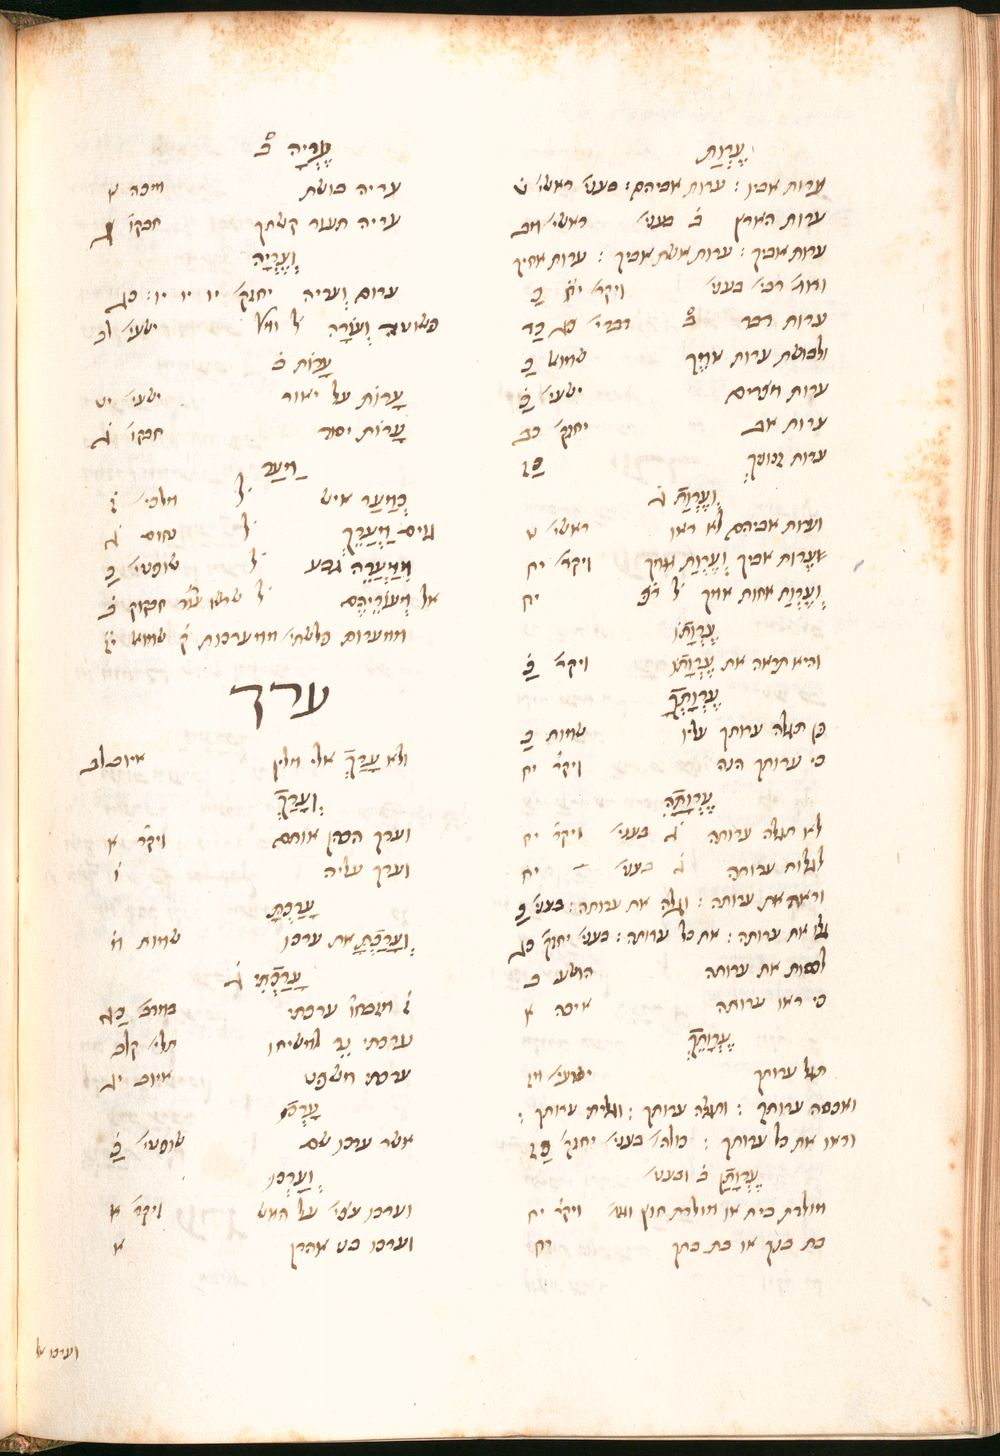 עֶרְוַת
ערות אביו : ערות אביהם : בעני׳ ראשי׳ ט
ערות הארץ ב֗ בעני׳ ראשי׳ מב
ערות אביך : ערות אשת אביך : ערות אחיך
ויקר׳ יח
ערות דבר ב֗ דברי׳ כג כד
ולבושת ערות אמך שמוא׳ כ
ערות מצרים ישעי׳ כ
ערות אב יחזק׳ כב
ערות זנוניך כג
וְעֶרְוַת ג֗
וערות אביהם לא ראו ראשי׳ ט
ויקר׳ יח
וְעֶרְוַת אחות אמך
עֶרְוָתוֹ
והיא תראה את עֶרְוָתוֹ ויקר׳ כ
עֶרְוָתְךָ
לא תגלה ערותך עליו שמות כ
כי ערותך הנה ויקר׳ יח
עֶרְוָתָהּ
לא תגלה ערותה ג֗ בעני׳ ויקר׳ יח
לגלות ערותה ג֗ בעני׳ יח
וראה את ערותה : וגלה את ערותה : בעני׳ כ
גלו את ערותה : את כל ערותה : בעני׳ יחזק׳ כג
לכסות את ערותה הושע ב
כי ראו ערותה איכה א
עֶרְוָתֵךְ
תגל ערותך ישעי׳ מז
ואכסה ערותך : ותגלה ערותך : וגליתי ערותך :
וראו את כל ערותך : כולה׳ בעני׳ יחזק׳
עֶרְוָתָן ב֗ ובעני׳
מולדת בית או מולדת חוץ ויקר׳ יח
בת בנך או בת בתך יח
עֶרְיָה ב֗
עריה בושת מיכה
עריה תעור קשתך חבקו׳ ג
וְעֶרְיָה
ערום ועריה יחזק׳
פשוטה וְעֹרָה ישעי׳ לב
עָרוֹת ב֗
עָרוֹת על יאור ישעי׳ יט
עָרוֹת יסוד חבקו׳ ג
מַעַר
כְּמַעַר איש מלכי׳ ז
גוים מַעְרֵךְ נחום ג
מִמַּעֲרֵה גבע שופטי׳ כ
אל מְעוֹרֵיהֶם חבקוק ב
ממערות פלשתי׳ ממערכות ק֗ שמוא׳ יז
ערך
ולא עָרַךְ אלי מלין איוב לב
וְעָרַךְ
וערך הכהן אותם ויקר׳ א
וערך עליה ו
עָרַכְתָּ
וְעָרַכְתָּ את ערכו שמות מ
עָרַכְתִּי ג֗
ז֗ מזבחו׳ ערכתי במדב׳ כג
ערכתי נר למשיחו תלי׳ קלב
ערכתי משפט איוב יג
עָרְכוּ
אשר ערכו שם שופטי׳ כ
וְעָרְכוּ
וערכו עצי׳ על האש ויקר׳ א
וערכו בני אהרן א
וערכו אל